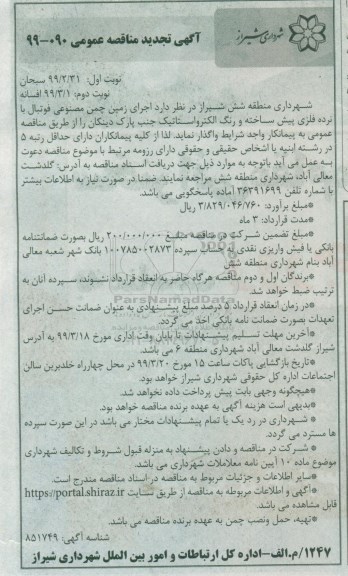 شهرداری شیراز
آگهی تجدید مناقصه عمومی ۰۹۰-۹۹
نوبت اول: ۹۹/۲/۳۱ سبحان
نوبت دوم: ۹۹/۳/۱ افسانه
شهرداری منطقه شش شیراز در نظر دارد اجرای زمین چمن مصنوعی فوتبال با
نرده فلزی پیش ساخته و رنگ الکترواستاتیک جنب پارک دینکان را از طریق مناقصه
عمومی به پیمانکار واجد شرایط واگذار نماید. لذا از کلیه پیمانکاران دارای حداقل رتبه ۵
در رشته ابنیه یا اشخاص حقیقی و حقوقی دارای رزومه مرتبط با موضوع مناقصه دعوت
به عمل می آید باتوجه به موارد ذیل جهت دریافت اسناد مناقصه به آدرس: گلدشت
معالی آباد، شهرداری منطقه شش مراجعه نمایند. ضمنا در صورت نیاز به اطلاعات بیشتر
با شماره تلفن ۳۶۲۹۱۶۹۹ آماده پاسخگویی می باشد.
*مبلغ برآورد: ۳/۸۲۹/۰۴۶/۷۶۰ ریال
*مدت قرارداد: ۳ ماه
*مبلغ تضمین شرکت در مناقصه مبلغ ۲۰۰/۰۰۰/۰۰۰ ریال بصورت ضمانتنامه
بانکی یا فیش واریزی نقدی به حساب سپرده ۱۰۰۷۸۵۰۰۲۸۷۳ بانک شهر شعبه معالی
آباد بنام شهرداری منطقه شش
*برندگان اول و دوم مناقصه هرگاه حاضر به انعقاد قرارداد نشوند، سپرده آنان به
ترتیب ضبط خواهد شد.
*در زمان انعقاد قرارداد ۵ درصد مبلغ پیشنهادی به عنوان ضمانت حسن اجرای
تعهدات بصورت ضمانت نامه بانکی اخذ می گردد.
*آخرین مهلت تسلیم پیشنهادات تا پایان وقت اداری مورخ ۹۹/۳/۱۸ به آدرس
شیراز گلدشت معالی آباد شهرداری منطقه ۶ می باشد.
*تاریخ بازگشایی پاکات ساعت ۱۵ مورخ ۹۹/۳/۲۰ در محل چهارراه خلدبرین سالن
اجتماعات اداره کل حقوقی شهرداری شیراز خواهد بود.
*هیچگونه وجهی بابت پیش پرداخت داده نخواهد شد.
*بدیهی است هزینه آگهی به عهده برنده مناقصه خواهد بود.
*شهرداری در رد یک یا تمام پیشنهادات مختار می باشد در این صورت سپرده
ها مسترد می گردد.
*شرکت در مناقصه و دادن پیشنهاد به منزله قبول شروط و تکالیف شهرداری
موضوع ماده ۱۰ آیین نامه معاملات شهرداری می باشد.
*سایر اطلاعات و جزئیات مربوط به مناقصه در اسناد مناقصه مندرج است.
*آگهی و اطلاعات مربوطه به مناقصه از طریق سایت https://portal.shiraz.ir
قابل مشاهده می باشد.
*تهیه، حمل ونصب چمن به عهده برنده مناقصه می باشد.
شناسه آگهی: ۸۵۱۷۴۹
۱۲۴۷/م.الف-اداره کل ارتباطات و امور بین الملل شهرداری شیراز
ParsNamadData